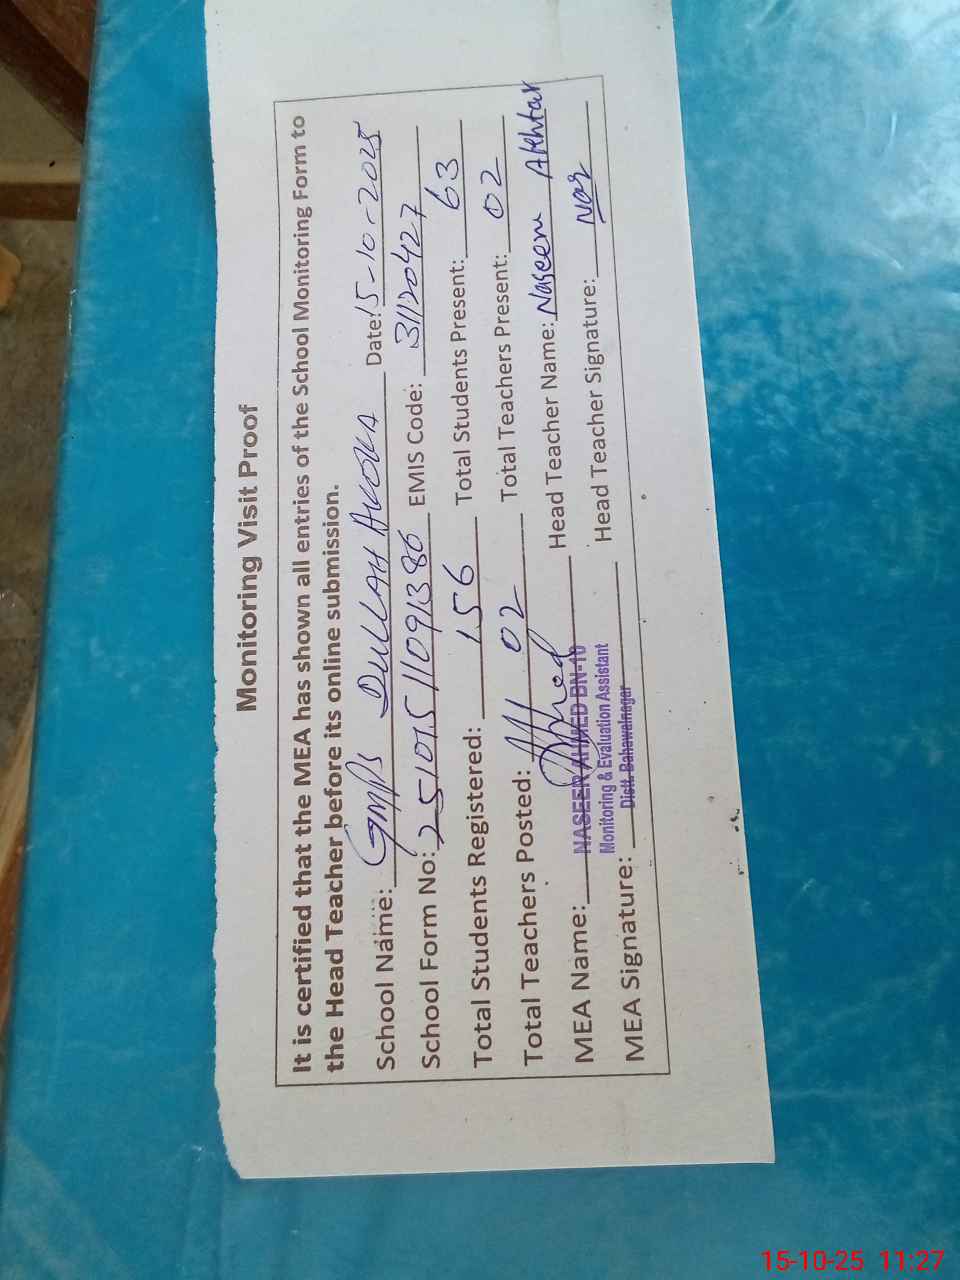 Monitoring Visit Proof
It is certified that the MEA has shown all entries of the School Monitoring Form to
the Head Teacher before its online submission.
School Name: GMPS DULLAH AKOKA Date: 15-10-2025
School Form No: 25101511091386 EMIS Code: 31120427
Total Students Registered: 156 Total Students Present: 63
Total Teachers Posted: 02 Total Teachers Present: 02
MEA Name: NASEER AHMED BN-10 Head Teacher Name: Naseem Akhtar
Monitoring & Evaluation Assistant
MEA Signature: Distt. Bahawalnagar Head Teacher Signature:
15-10-25 11:27